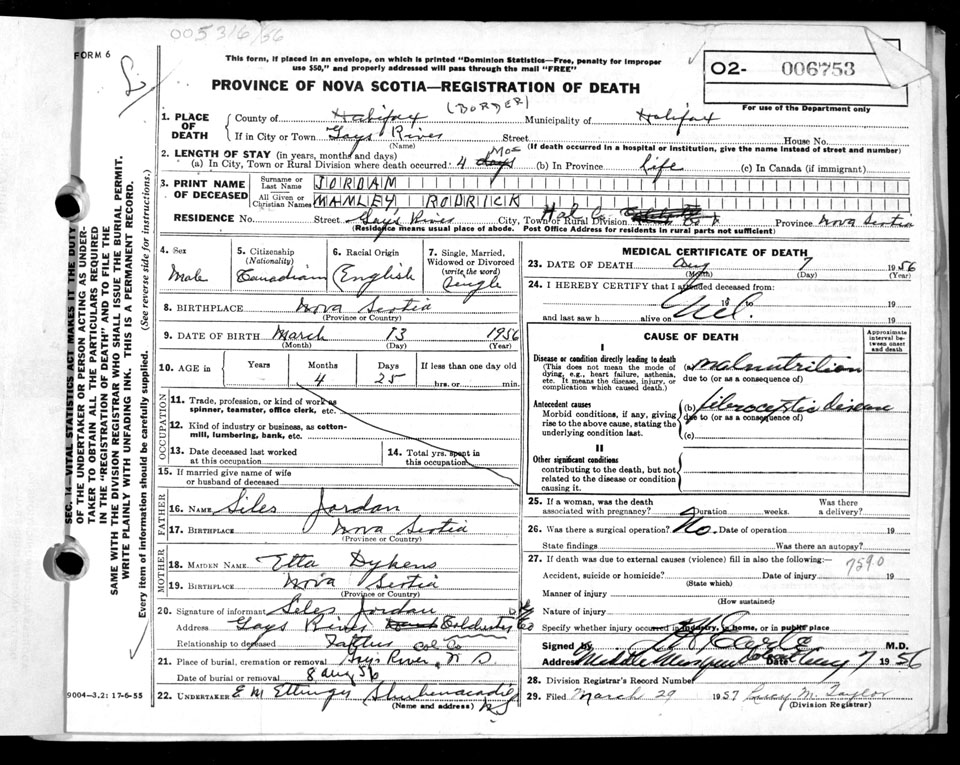 005316/56
FORM 6
This form, if placed in an envelope, on which is printed "Dominion Statistics—Free, penalty for improper
use $50," and properly addressed will pass through the mail "FREE"
O2- 006753
For use of the Department only
PROVINCE OF NOVA SCOTIA—REGISTRATION OF DEATH
(BORDER)
1. PLACE OF DEATH { County of Halifax Municipality of Halifax
If in City or Town Gays River Street House No.
(Name) (If death occurred in a hospital or institution, give the name instead of street and number)
2. LENGTH OF STAY (in years, months and days)
(a) In City, Town or Rural Division where death occurred 4 days Mos (b) In Province life (c) In Canada (if immigrant)
3. PRINT NAME OF DECEASED { Surname or Last Name JORDAM
All Given or Christian Names MAMLEY RODRICK
RESIDENCE No. Street Gays River City, Town or Rural Division Hal Co Province Nova Scotia
(Residence means usual place of abode. Post Office Address for residents in rural parts not sufficient)
4. Sex Male
5. Citizenship (Nationality) Canadian
6. Racial Origin English
7. Single, Married, Widowed or Divorced (write the word) Single
8. BIRTHPLACE Nova Scotia
(Province or Country)
9. DATE OF BIRTH March 13 1956
(Month) (Day) (Year)
10. AGE in { Years Months 4 Days 25 If less than one day hrs. or min.
OCCUPATION
11. Trade, profession, or kind of work as
spinner, teamster, office clerk, etc.
12. Kind of industry or business, as cotton-
mill, lumbering, bank, etc.
13. Date deceased last worked
at this occupation
14. Total yrs. spent in
this occupation
15. If married give name of wife
or husband of deceased
FATHER
16. NAME Siles Jordan
17. BIRTHPLACE Nova Scotia
(Province or Country)
MOTHER
18. MAIDEN NAME Etta Dykens
19. BIRTHPLACE Nova Scotia
(Province or Country)
20. Signature of informant Siles Jordan
Address Gays River Colchester Co
Relationship to deceased Father Col. Co
21. Place of burial, cremation or removal Gays River, N S
Date of burial or removal 8 Aug 56
22. UNDERTAKER E M Ettinger Shubenacadie N S
(Name and address)
MEDICAL CERTIFICATE OF DEATH
23. DATE OF DEATH Aug 7 1956
(Month) (Day) (Year)
24. I HEREBY CERTIFY that I attended deceased from:
19 to 19
Nil.
and last saw h alive on 19
CAUSE OF DEATH
Approximate interval between onset and death
I
Disease or condition directly leading to death
(This does not mean the mode of
dying, e.g., heart failure, asthenia,
etc. It means the disease, injury, or
complication which caused death.)
(a) malnutrition
due to (or as a consequence of)
Antecedent causes
Morbid conditions, if any, giving
rise to the above cause, stating the
underlying condition last.
(b) fibrocystic disease
due to (or as a consequence of)
(c)
II
Other significant conditions
contributing to the death, but not
related to the disease or condition
causing it.
25. If a woman, was the death
associated with pregnancy? Duration weeks. Was there a delivery?
26. Was there a surgical operation? No Date of operation 19
State findings Was there an autopsy?
27. If death was due to external causes (violence) fill in also the following:— 759.0
Accident, suicide or homicide? Date of injury 19
(State which)
Manner of injury
(How sustained)
Nature of injury
Specify whether injury occurred in industry, in home, or in public place
Signed by M.D.
Address Middle Musquodoboit Date Aug 7 1956
28. Division Registrar's Record Number
29. Filed March 29 1957 Lucy M. Taylor
(Division Registrar)
SEC. 14—VITAL STATISTICS ACT MAKES IT THE DUTY
OF THE UNDERTAKER OR PERSON ACTING AS UNDER-
TAKER TO OBTAIN ALL THE PARTICULARS REQUIRED
IN THE "REGISTRATION OF DEATH" AND TO FILE THE
SAME WITH THE DIVISION REGISTRAR WHO SHALL ISSUE THE BURIAL PERMIT.
WRITE PLAINLY WITH UNFADING INK. THIS IS A PERMANENT RECORD.
Every item of information should be carefully supplied. (See reverse side for instructions.)
9004—3.2: 17-6-55